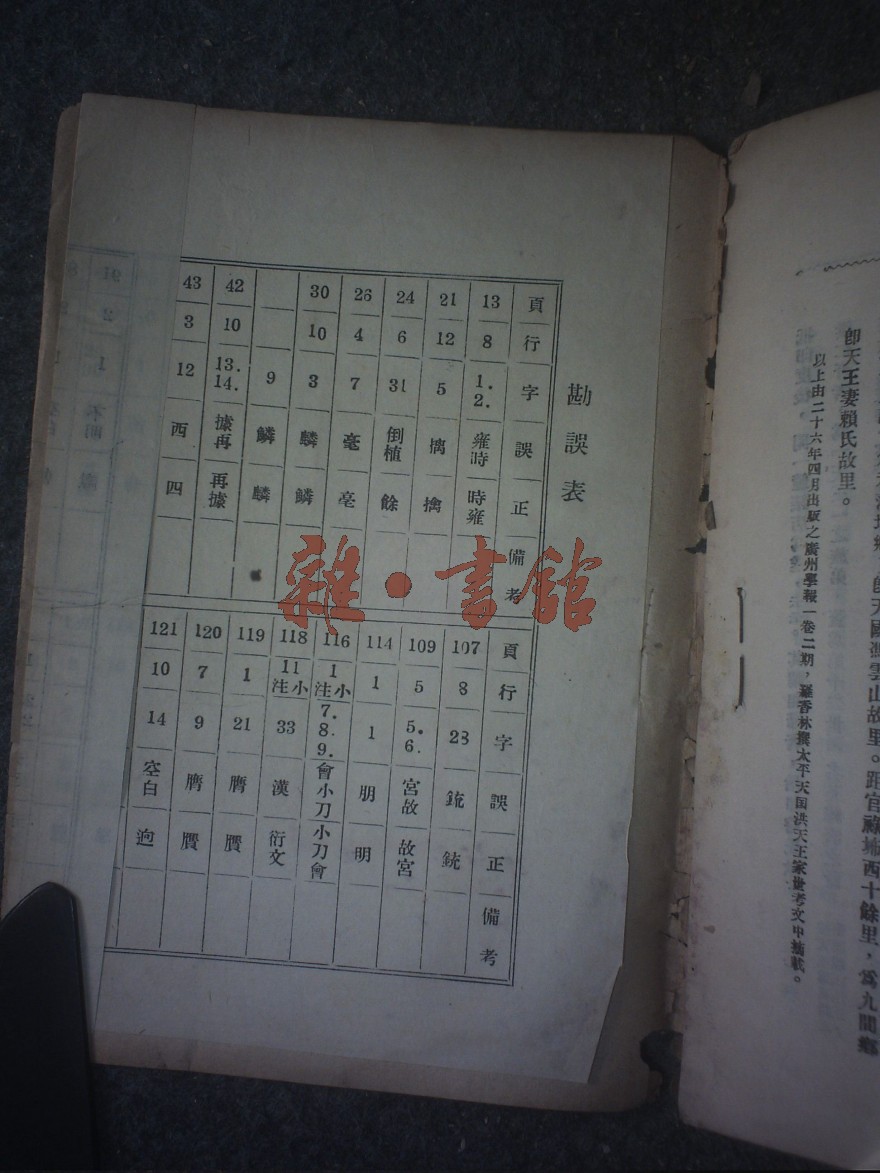 勘誤表
頁 行 字 誤 正 備考
13 8 1.2. 雍時 時雍
21 12 5 擒
24 6 31 倒植 餘
26 4 7
30 10 3 麟 鱗
9 鱗 麟
42 10 13.14. 據再 再據
43 3 12 西 四
頁 行 字 誤 正 備考
107 8 28 銃
109 5 5.6. 宮故 故宮
114 1 1 朋 明
116 1小注 7.8.9. 會小刀 小刀會
118 11小注 33 漢 衍文
119 1 21 贋
120 7 9 贋
121 10 14 空白 逈
雜·書館
即天國馮雲山故里。距官祿㘵西十餘里,為九間鄉
即天王妻賴氏故里。
以上由二十六年四月出版之廣州學報一卷二期,羅香林撰太平天国洪天王家世考文中摘載。